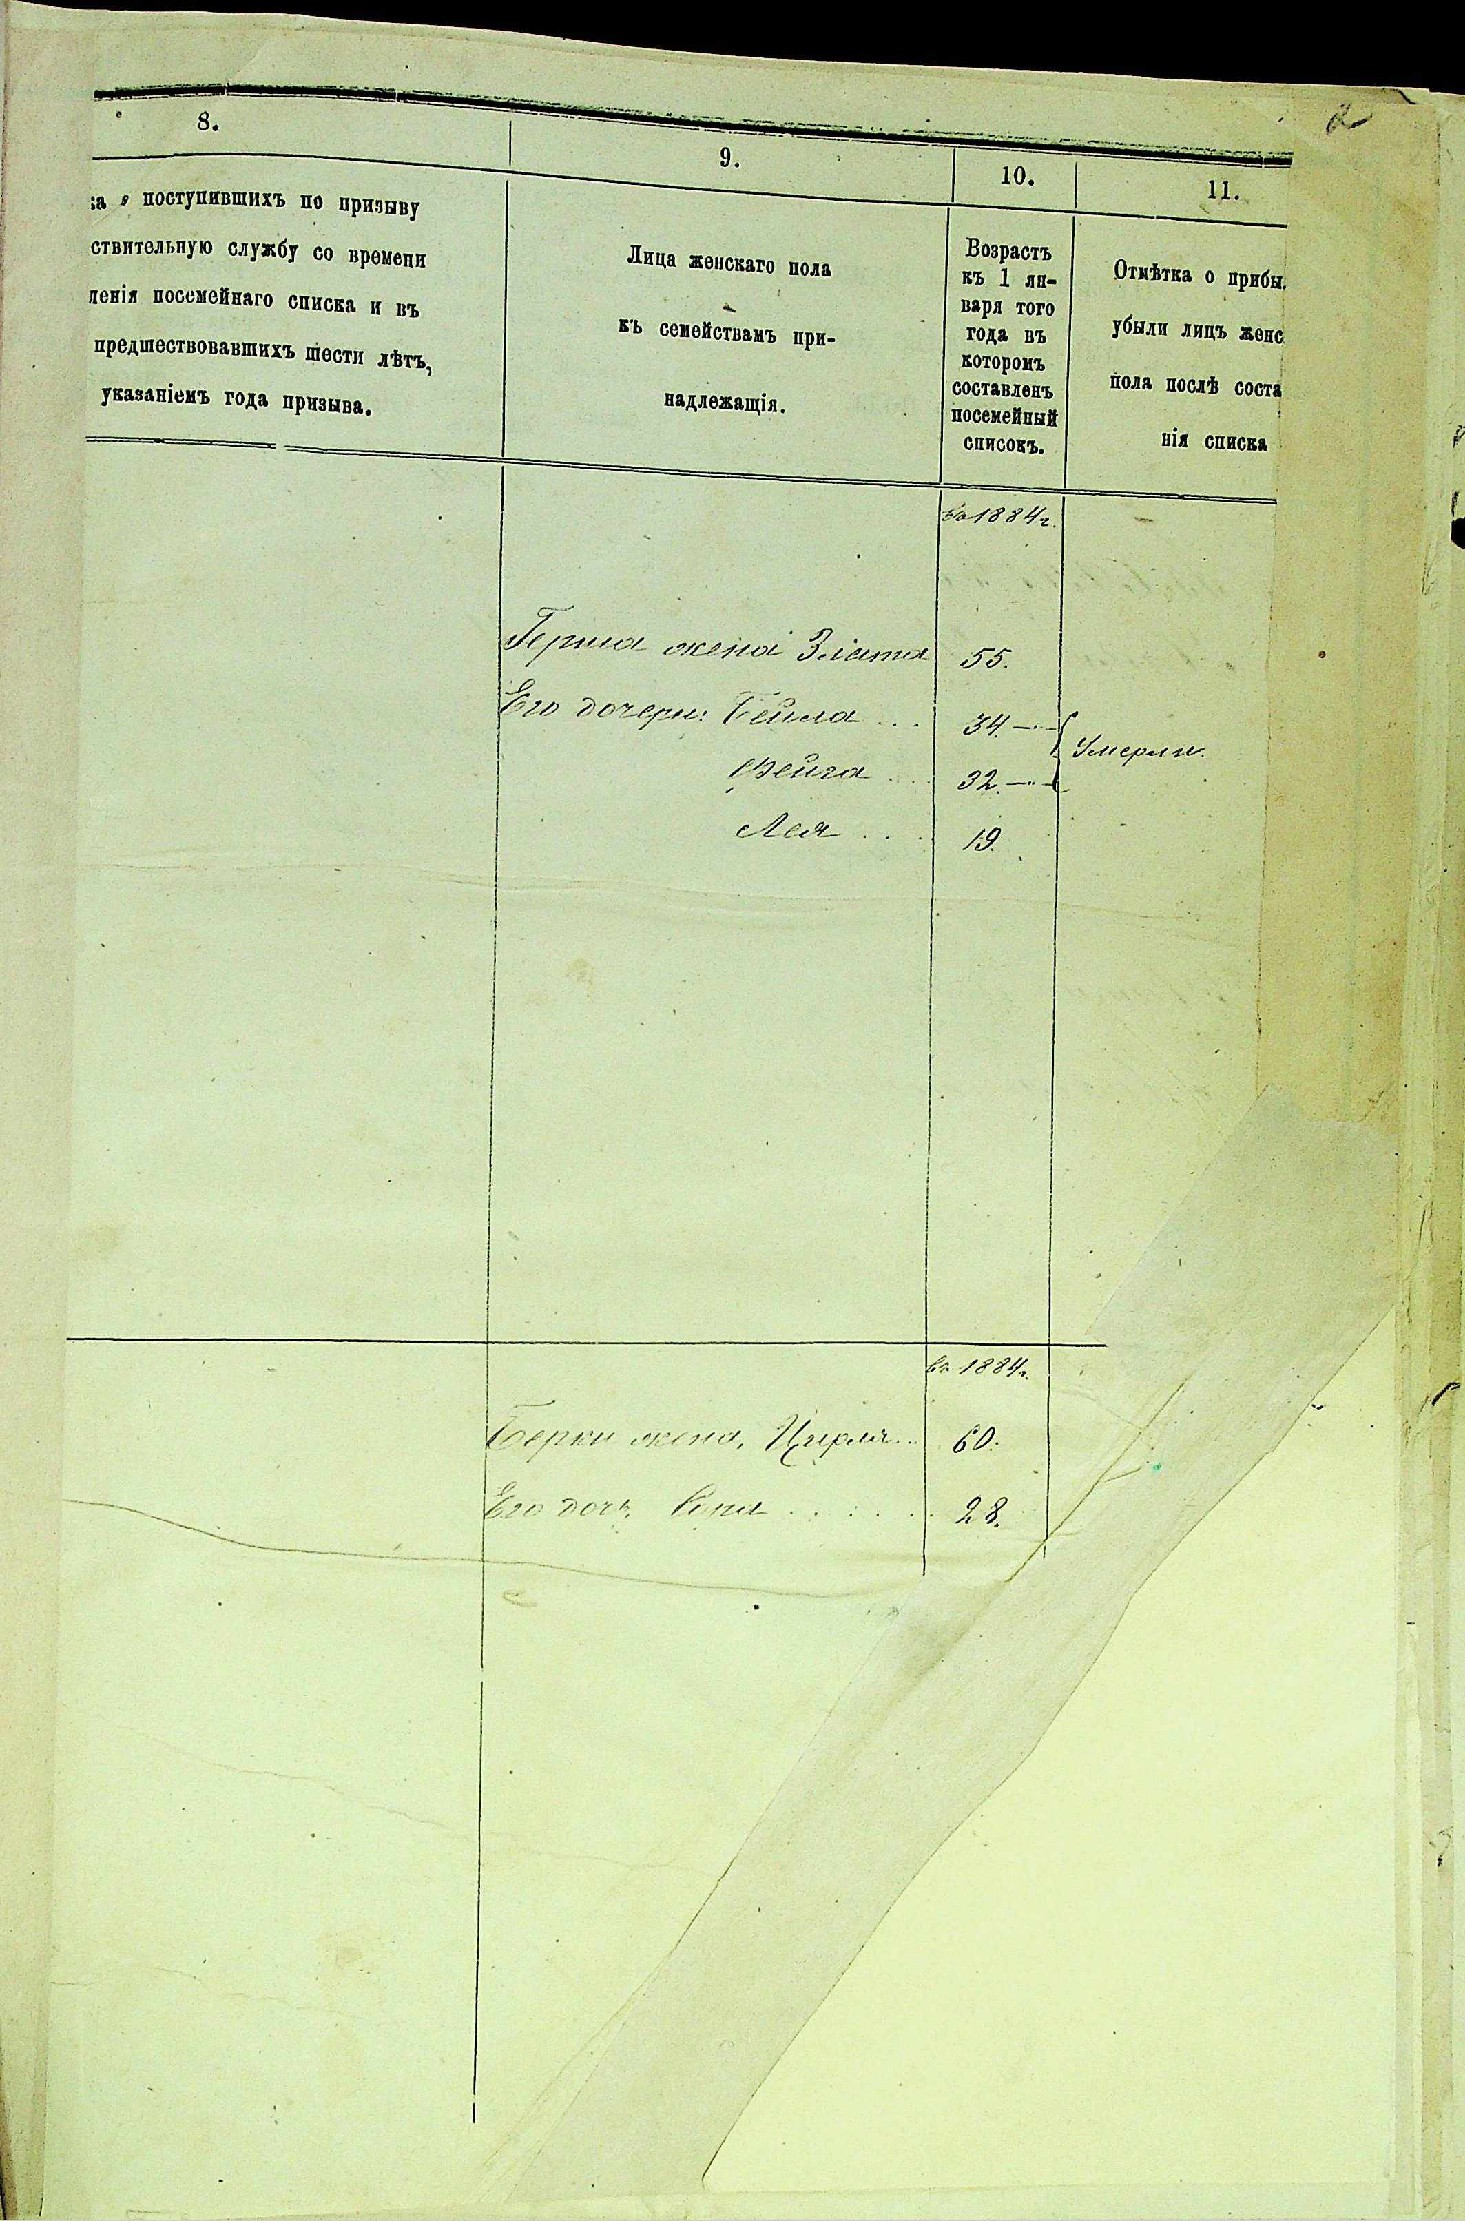 2
8.
9.
10.
11.
ка о поступившихъ по призыву
ствительную службу со времени
ленія посемейнаго списка и въ
предшествовавшихъ шести лѣтъ,
указаніемъ года призыва.
Лица женскаго пола
къ семействамъ при-
надлежащія.
Возрастъ
къ 1 ян-
варя того
года въ
которомъ
составленъ
посемейный
списокъ.
Отмѣтка о прибы
убыли лицъ женс
пола послѣ соста
нія списка
въ 1884 г.
Герша жена Злата 55.
Его дочери: Бейла ... 34.
Фейга ... 32.
Умерли.
Лея .... 19.
въ 1884 г.
Берки жена, Цирля .. 60.
Его дочь 28.